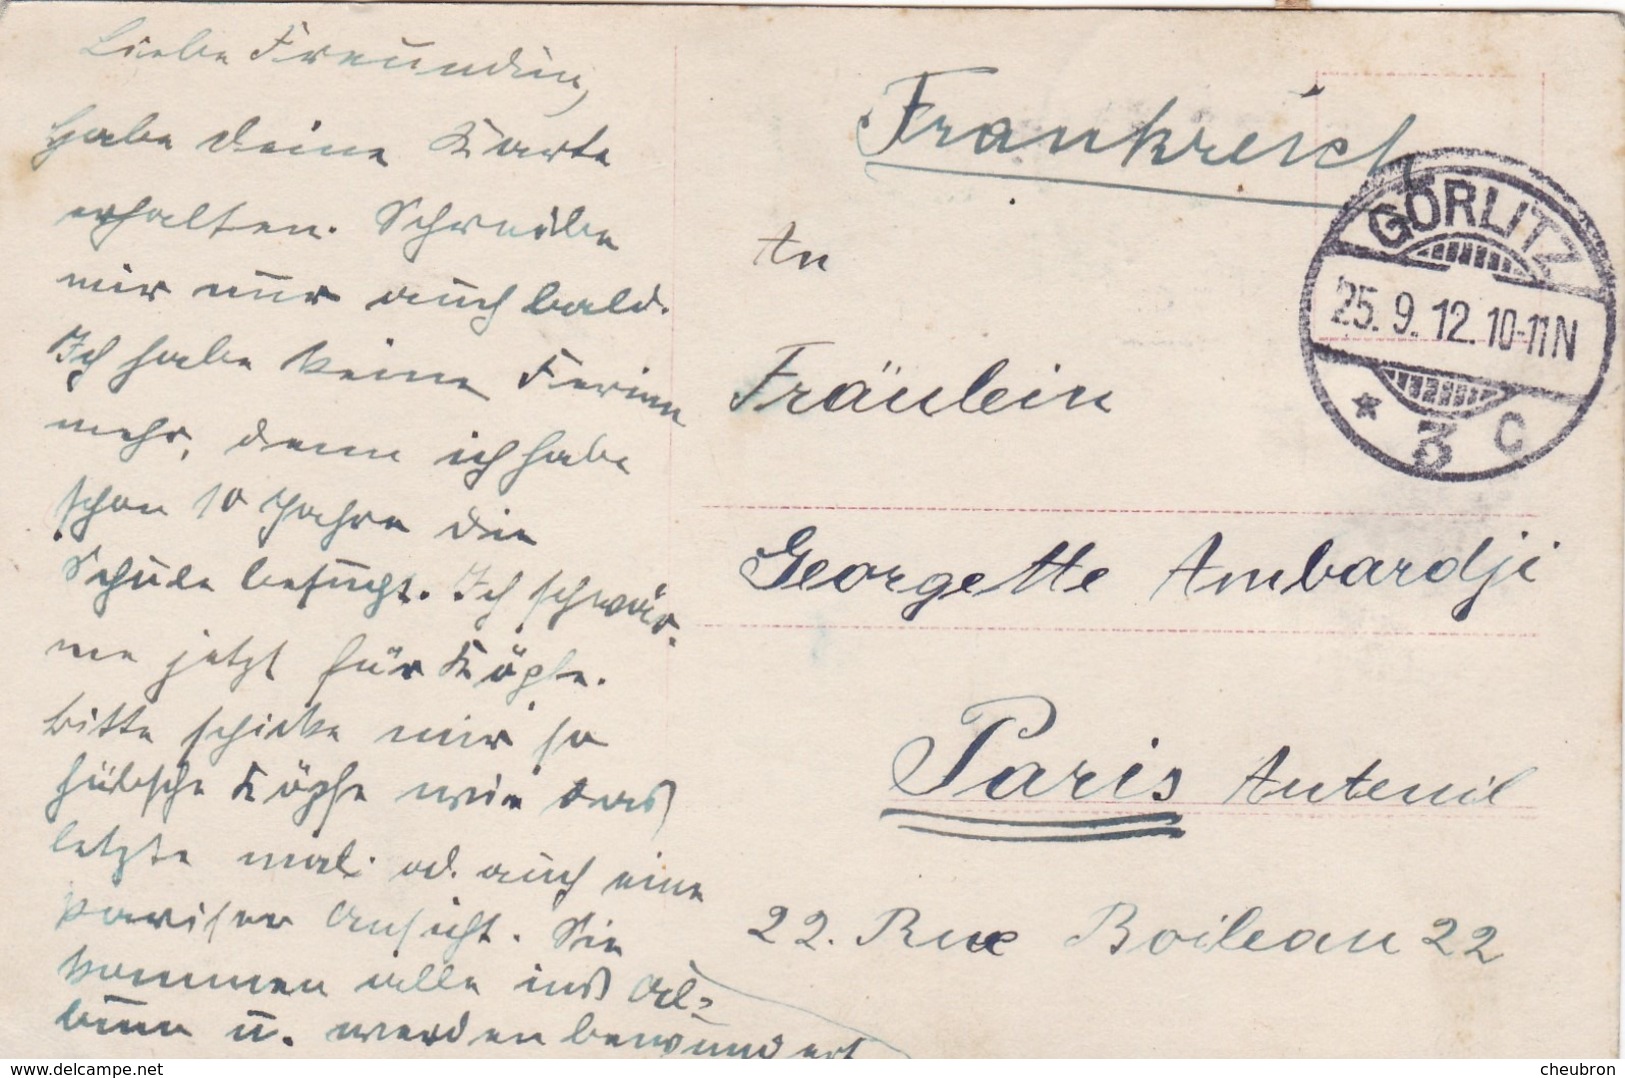 Liebe Freundin,
habe deine Karte
erhalten. Schreibe
mir nur auch bald.
Ich habe keine Ferien
mehr, denn ich habe
schon 10 Jahre die
Schule besucht. Ich schwär-
me jetzt für Köpfe.
bitte schicke mir so
hübsche Köpfe wie das
letzte mal. od. auch eine
pariser Ansicht. Sie
kommen alle ins Al-
bum u. werden bewundert
Frankreich
An
Fräulein
Georgette Ambardji
Paris Auteuil
22. Rue Boileau 22
GÖRLITZ
25.9.12.10-11N
* 3 C
delcampe.net
cheubron